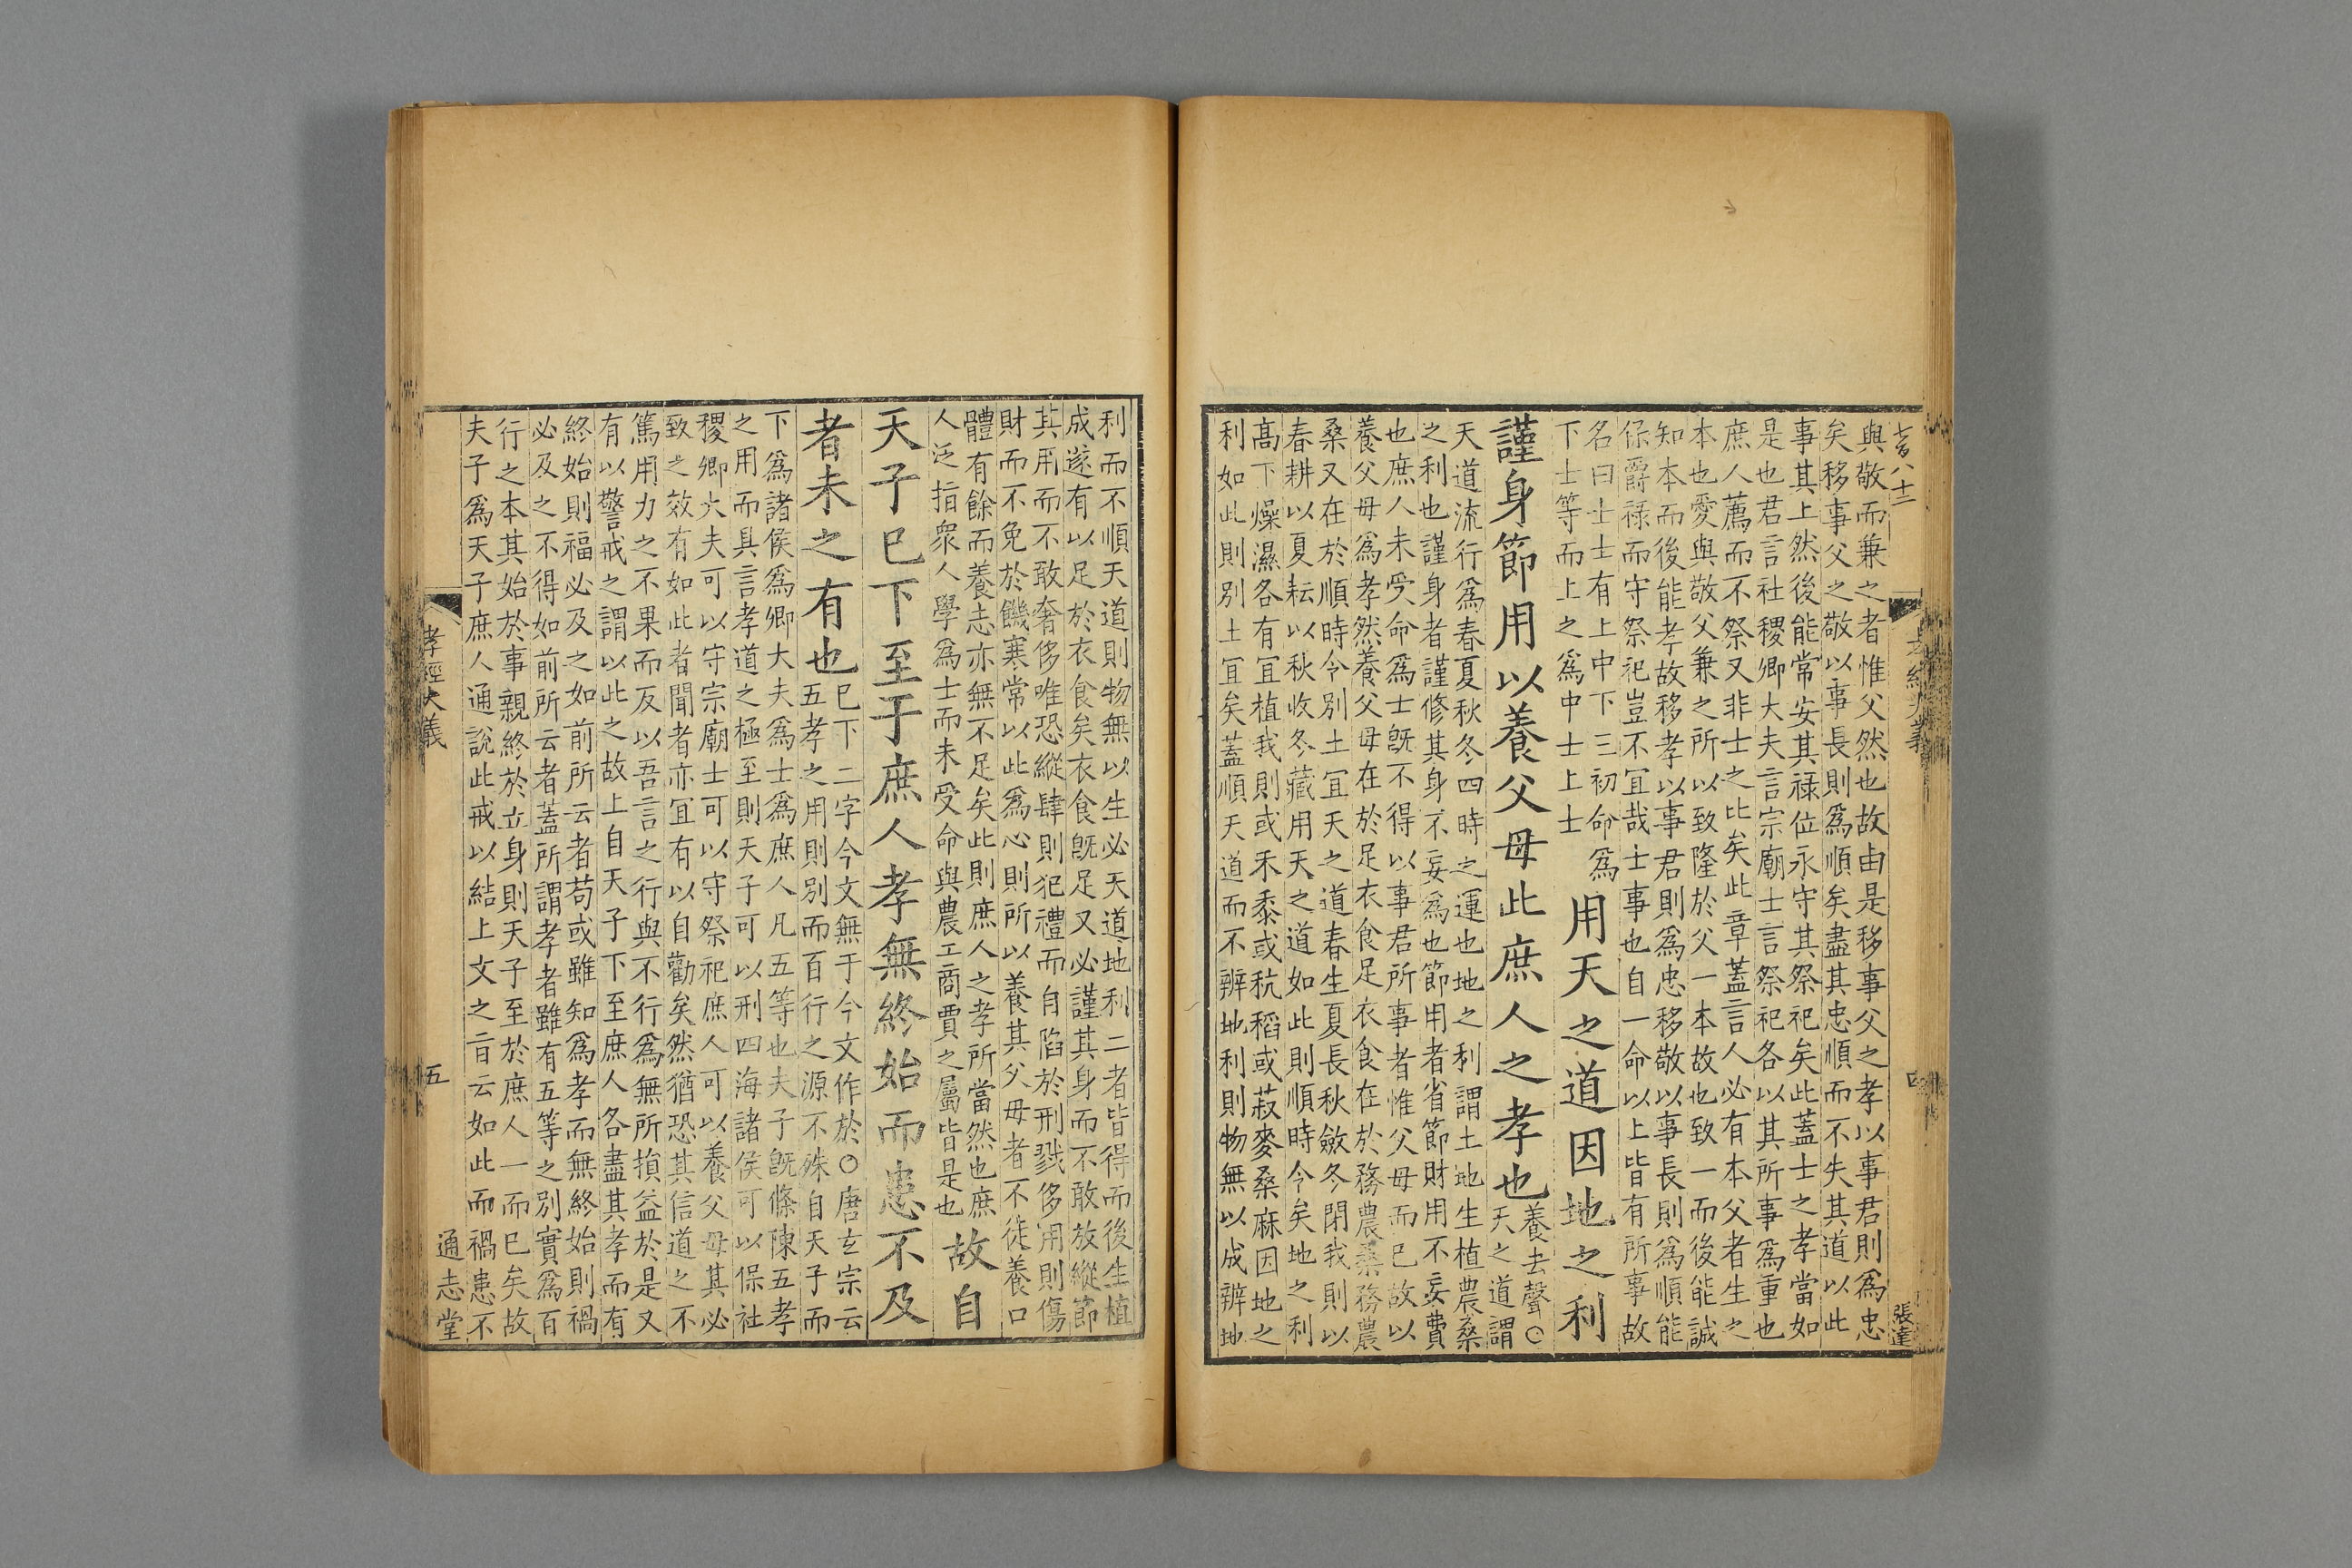 七百八十三
與敬而兼之者惟父然也故由是移事父之孝以事君則爲忠
矣移事父之敬以事長則爲順矣盡其忠順而不失其道以此
事其上然後能常安其祿位永守其祭祀矣此蓋士之孝當如
是也君言社稷卿大夫言宗廟士言祭祀各以其所事爲重也
庶人薦而不祭又非士之比矣此章蓋言人必有本父者生之
本也愛與敬父兼之所以致隆於父一本故也致一而後能誠
知本而後能孝故移孝以事君則爲忠移敬以事長則爲順能
保爵祿而守祭祀豈不宜哉士事也自一命以上皆有所事故
名曰士士有上中下三初命爲
下士等而上之爲中士上士
用天之道因地之利
謹身節用以養父母此庶人之孝也
養去聲○
天之道謂
天道流行爲春夏秋冬四時之運也地之利謂土地生植農桑
之利也謹身者謹修其身不妄爲也節用者省節財用不妄費
也庶人未受命爲士旣不得以事君所事者惟父母而已故以
養父母爲孝然養父母在於足衣食足衣食在於務農桑務農
桑又在於順時令別土宜天之道春生夏長秋斂冬閉我則以
春耕以夏耘以秋收冬藏用天之道如此則順時令矣地之利
高下燥濕各有宜植我則或禾黍或秔稻或菽麥桑麻因地之
利如此則別土宜矣蓋順天道而不辨地利則物無以成辨地
四
張達
利而不順天道則物無以生必天道地利二者皆得而後生植
成遂有以足於衣食矣衣食旣足又必謹其身而不敢放縱節
其用而不敢奢侈唯恐縱肆則犯禮而自陷於刑戮侈用則傷
財而不免於饑寒常以此爲心則所以養其父母者不徒養口
體有餘而養志亦無不足矣此則庶人之孝所當然也庶
人泛指衆人學爲士而未受命與農工商賈之屬皆是也
故自
天子已下至于庶人孝無終始而患不及
者未之有也
已下二字今文無于今文作於○唐玄宗云
五孝之用則別而百行之源不殊自天子而
下爲諸侯爲卿大夫爲士爲庶人凡五等也夫子旣條陳五孝
之用而具言孝道之極至則天子可以刑四海諸侯可以保社
稷卿大夫可以守宗廟士可以守祭祀庶人可以養父母其必
致之效有如此者聞者亦宜有以自勸矣然猶恐其信道之不
篤用力之不果而反以吾言之行與不行爲無所損益於是又
有以警戒之謂以此之故上自天子下至庶人各盡其孝而有
終始則福必及之如前所云者苟或雖知爲孝而無終始則禍
必及之不得如前所云者蓋所謂孝者雖有五等之別實爲百
行之本其始於事親終於立身則天子至於庶人一而已矣故
夫子爲天子庶人通說此戒以結上文之旨云如此而禍患不
孝經大義
五
通志堂